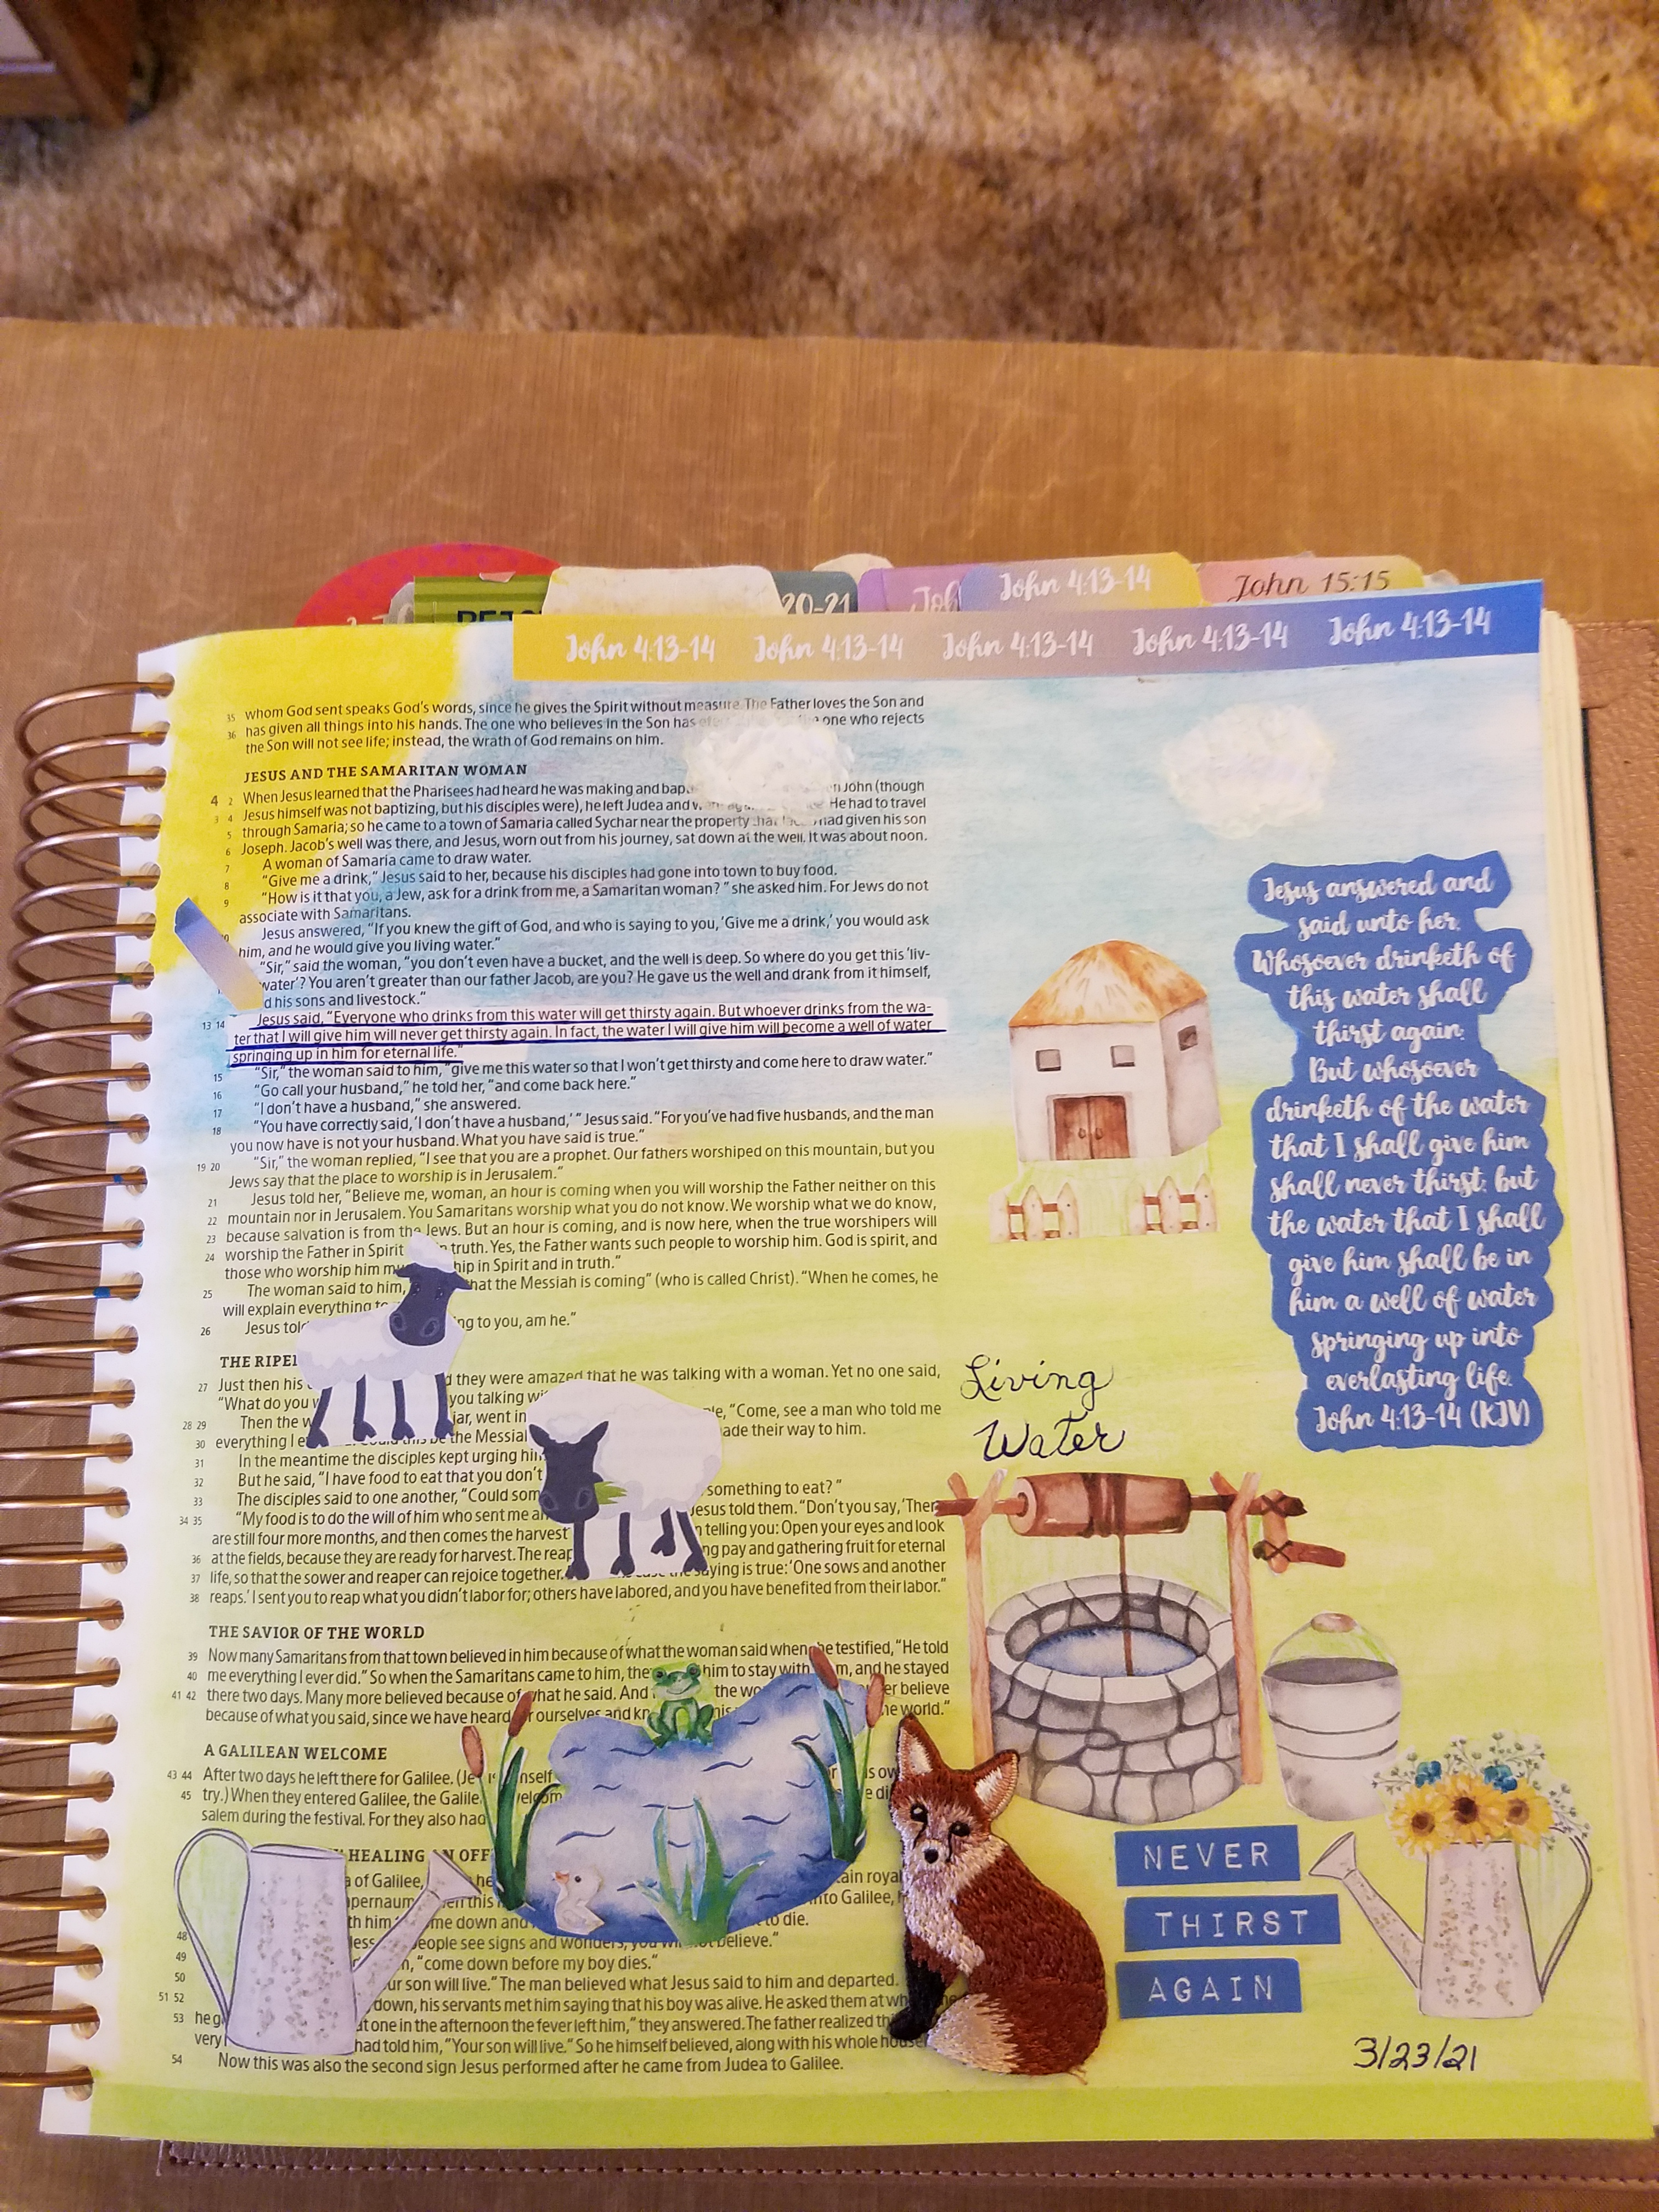 20-21
John 4:13-14
John 15:15
John 4:13-14 John 4:13-14 John 4:13-14 John 4:13-14 John 4:13-14
35 whom God sent speaks God's words, since he gives the Spirit without measure. The Father loves the Son and
36 has given all things into his hands. The one who believes in the Son has one who rejects
the Son will not see life; instead, the wrath of God remains on him.
JESUS AND THE SAMARITAN WOMAN
4 2 When Jesus learned that the Pharisees had heard he was making and John (though
3 4 Jesus himself was not baptizing, but his disciples were), he left Judea and He had to travel
5 through Samaria; so he came to a town of Samaria called Sychar near the property had given his son
6 Joseph. Jacob's well was there, and Jesus, worn out from his journey, sat down at the well. It was about noon.
7 A woman of Samaria came to draw water.
8 "Give me a drink," Jesus said to her, because his disciples had gone into town to buy food.
9 "How is it that you, a Jew, ask for a drink from me, a Samaritan woman?" she asked him. For Jews do not
associate with Samaritans.
Jesus answered, "If you knew the gift of God, and who is saying to you, 'Give me a drink,' you would ask
him, and he would give you living water."
"Sir," said the woman, "you don't even have a bucket, and the well is deep. So where do you get this 'liv-
water'? You aren't greater than our father Jacob, are you? He gave us the well and drank from it himself,
d his sons and livestock."
13 14 Jesus said, "Everyone who drinks from this water will get thirsty again. But whoever drinks from the wa-
ter that I will give him will never get thirsty again. In fact, the water I will give him will become a well of water
springing up in him for eternal life."
15 "Sir," the woman said to him, "give me this water so that I won't get thirsty and come here to draw water."
16 "Go call your husband," he told her, "and come back here."
17 "I don't have a husband," she answered.
18 "You have correctly said, 'I don't have a husband,'" Jesus said. "For you've had five husbands, and the man
you now have is not your husband. What you have said is true."
19 20 "Sir," the woman replied, "I see that you are a prophet. Our fathers worshiped on this mountain, but you
Jews say that the place to worship is in Jerusalem."
21 Jesus told her, "Believe me, woman, an hour is coming when you will worship the Father neither on this
22 mountain nor in Jerusalem. You Samaritans worship what you do not know. We worship what we do know,
23 because salvation is from the Jews. But an hour is coming, and is now here, when the true worshipers will
24 worship the Father in Spirit truth. Yes, the Father wants such people to worship him. God is spirit, and
those who worship him hip in Spirit and in truth."
25 The woman said to him, hat the Messiah is coming" (who is called Christ). "When he comes, he
will explain everything to
26 Jesus tol ng to you, am he."
THE RIPE
27 Just then his they were amazed that he was talking with a woman. Yet no one said,
"What do you you talking
28 29 Then the jar, went in "Come, see a man who told me
30 everything I the Messia ade their way to him.
31 In the meantime the disciples kept urging
32 But he said, "I have food to eat that you don't
33 The disciples said to one another, "Could som something to eat?"
34 35 "My food is to do the will of him who sent me Jesus told them. "Don't you say, 'Ther
are still four more months, and then comes the harvest telling you: Open your eyes and look
36 at the fields, because they are ready for harvest. The reap ng pay and gathering fruit for eternal
37 life, so that the sower and reaper can rejoice together. saying is true: 'One sows and another
38 reaps.' I sent you to reap what you didn't labor for; others have labored, and you have benefited from their labor."
THE SAVIOR OF THE WORLD
39 Now many Samaritans from that town believed in him because of what the woman said when he testified, "He told
40 me everything I ever did." So when the Samaritans came to him, the him to stay with m, and he stayed
41 42 there two days. Many more believed because of what he said. And the wo er believe
because of what you said, since we have heard ourselves and kn he world."
A GALILEAN WELCOME
43 44 After two days he left there for Galilee. (Je nself
45 try.) When they entered Galilee, the Galile
salem during the festival. For they also had
HEALING N OFF
a of Galilee, ain royal
pernaum into Galilee,
th him me down and to die.
48 people see signs and wonders, believe."
49 "come down before my boy dies."
50 ur son will live." The man believed what Jesus said to him and departed.
51 52 down, his servants met him saying that his boy was alive. He asked them at
53 he at one in the afternoon the fever left him," they answered. The father realized
very had told him, "Your son will live." So he himself believed, along with his whole
54 Now this was also the second sign Jesus performed after he came from Judea to Galilee.
Jesus answered and
said unto her,
Whosoever drinketh of
this water shall
thirst again:
But whosoever
drinketh of the water
that I shall give him
shall never thirst; but
the water that I shall
give him shall be in
him a well of water
springing up into
everlasting life.
John 4:13-14 (KJV)
Living
Water
NEVER
THIRST
AGAIN
3/23/21